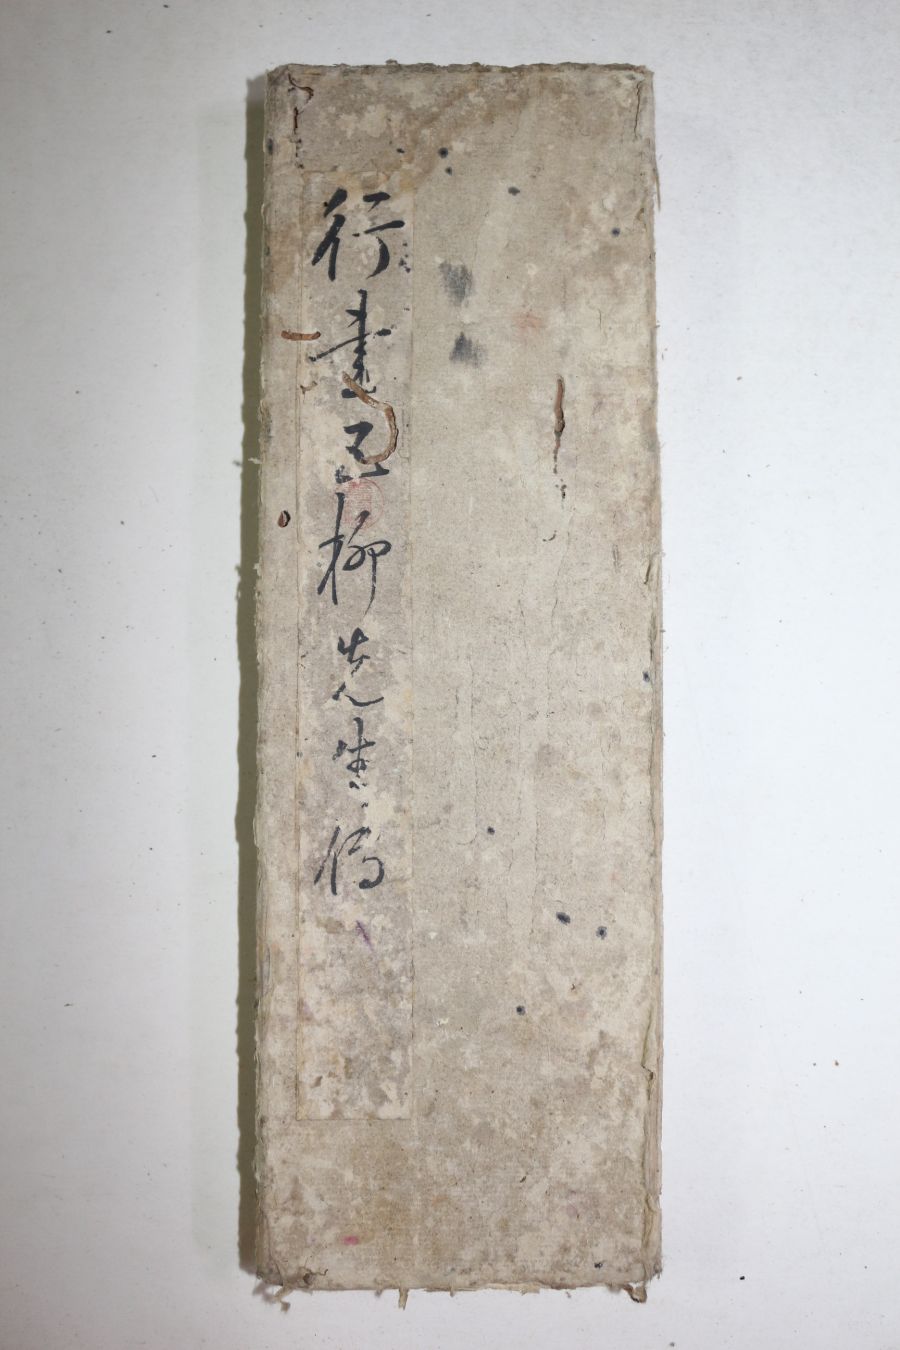 行書五柳先生傳